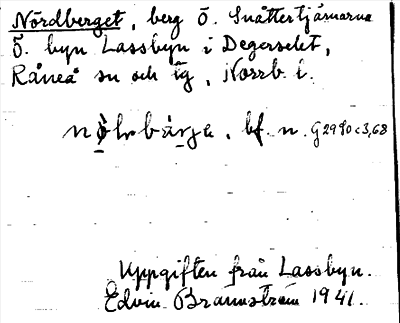 Nördberget, berg Ö. Snåttertjärnarna
Ö. byn Lassbyn i Degerselet,
Råneå sn och tg, Norrb. l.
bf. n. G2990c3,68
Uppgiften från Lassbyn.
Edvin Brännström 1941.